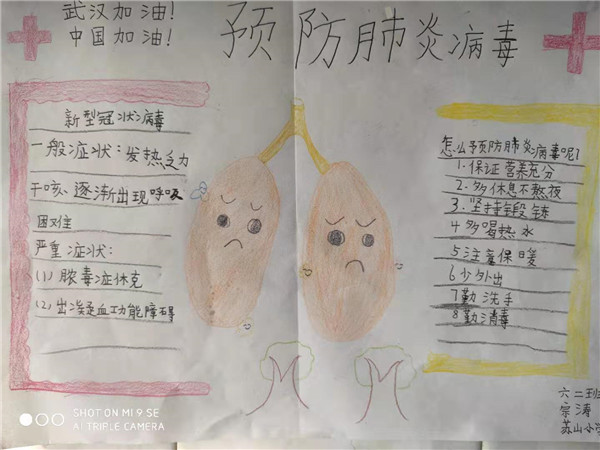 武汉加油!
中国加油!
预防肺炎病毒
新型冠状病毒
一般症状:发热乏力
干咳、逐渐出现呼吸
困难
严重症状:
(1)脓毒症休克
(2)出凝血功能障碍
怎么预防肺炎病毒呢?
1.保证营养充分
2.多休息不熬夜
3.坚持锻炼
4多喝热水
5注意保暖
6少外出
7勤洗手
8勤消毒
六二班
宗涛
苏山小学
SHOT ON MI 9 SE
AI TRIPLE CAMERA